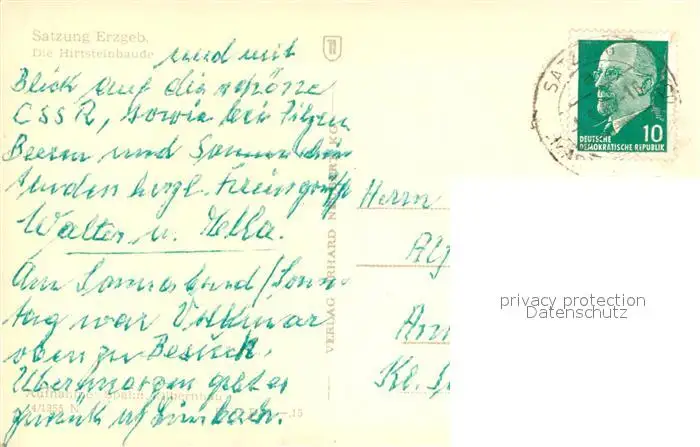 Satzung Erzgeb.
Die Hirtsteinbaude
und mit
Blick auf die schöne
CSSR, sowie bei Pilzen
Beeren und Sonne
senden herzl. Feriengrüße
Walter u. Hella.
Am Sonnabend/Sonn-
tag war Volkmar
oben zu Besuch.
Übermorgen geht es
zurück n/ Limbach.
Aufnahme: Spahn,
VERLAG ERHARD
SATZUNG
DEUTSCHE
DEMOKRATISCHE REPUBLIK
10
Herrn
Kl.
privacy protection
Datenschutz